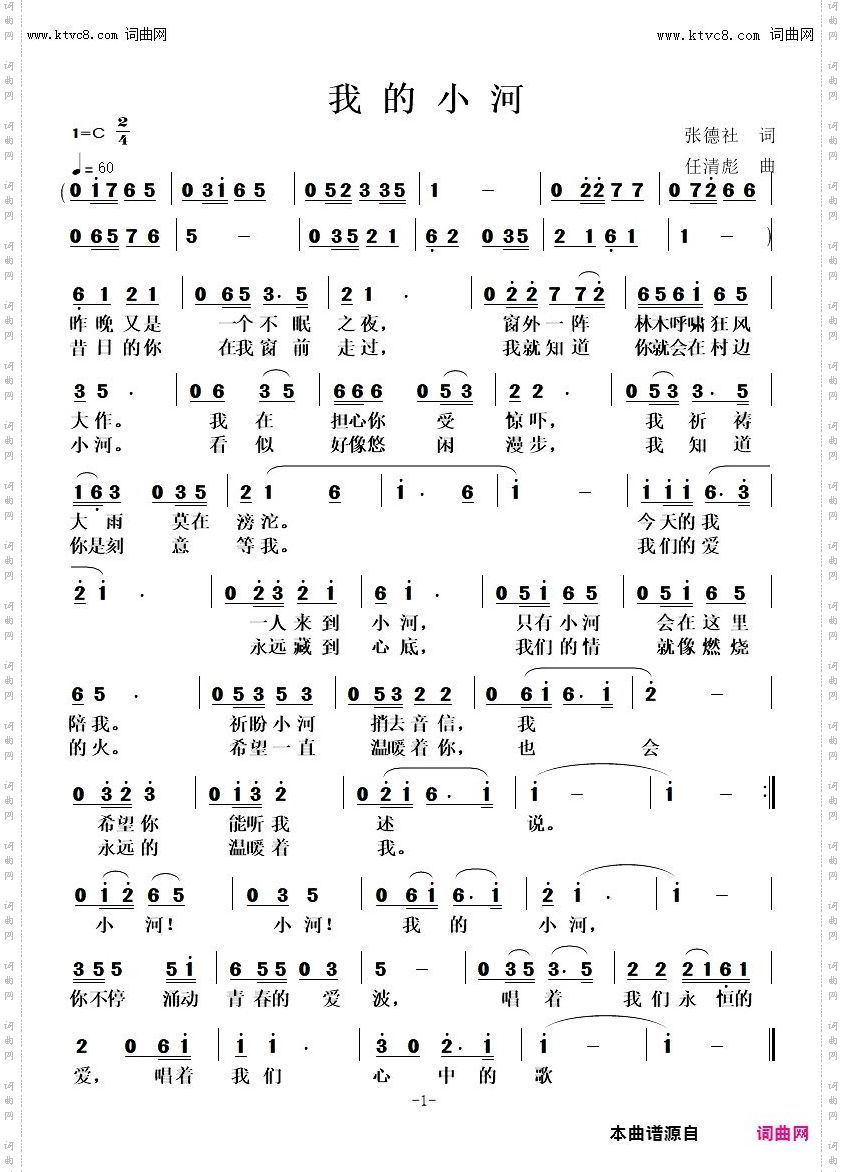 www.ktvc8.com 词曲网
www.ktvc8.com 词曲网
我的小河
1=C 2/4
张德社 词
♩=60
任清彪 曲
(0 1 7 6 5 | 0 3 1 6 5 | 0 5 2 3 3 5 | 1 - | 0 2 2 7 7 | 0 7 2 6 6 |
0 6 5 7 6 | 5 - | 0 3 5 2 1 | 6 2 0 3 5 | 2 1 6 1 | 1 - )
6 1 2 1 | 0 6 5 3. 5 | 2 1 . | 0 2 2 7 7 2 | 6 5 6 1 6 5 |
昨晚又是 一个不眠 之夜， 窗外一阵 林木呼啸狂风
昔日的你 在我窗前 走过， 我就知道 你就会在村边
3 5 . | 0 6 3 5 | 6 6 6 0 5 3 | 2 2 . | 0 5 3 3. 5 |
大作。 我在 担心你 受 惊吓， 我祈祷
小河。 看似 好像悠 闲 漫步， 我知道
1 6 3 0 3 5 | 2 1 6 | 1 . 6 | 1 - | 1 1 1 6. 3 |
大雨 莫在 滂沱。 今天的我
你是刻 意 等我。 我们的爱
2 1 . | 0 2 3 2 1 | 6 1 . | 0 5 1 6 5 | 0 5 1 6 5 |
一人来到 小河， 只有小河 会在这里
永远藏到 心底， 我们的情 就像燃烧
6 5 . | 0 5 3 5 3 | 0 5 3 2 2 | 0 6 1 6. 1 | 2 - |
陪我。 祈盼小河 捎去音信， 我
的火。 希望一直 温暖着你， 也 会
0 3 2 3 | 0 1 3 2 | 0 2 1 6. 1 | 1 - | 1 - :|
希望你 能听我 述 说。
永远的 温暖着 我。
0 1 2 6 5 | 0 3 5 | 0 6 1 6. 1 | 2 1 . | 1 - |
小 河！ 小河！ 我 的 小河，
3 5 5 5 1 | 6 5 5 0 3 | 5 - | 0 3 5 3. 5 | 2 2 2 1 6 1 |
你不停 涌动 青春的 爱 波， 唱 着 我们永 恒的
2 0 6 1 | 1 1 . | 3 0 2. 1 | 1 - | 1 - ‖
爱， 唱着 我们 心 中的 歌
-1-
本曲谱源自 词曲网